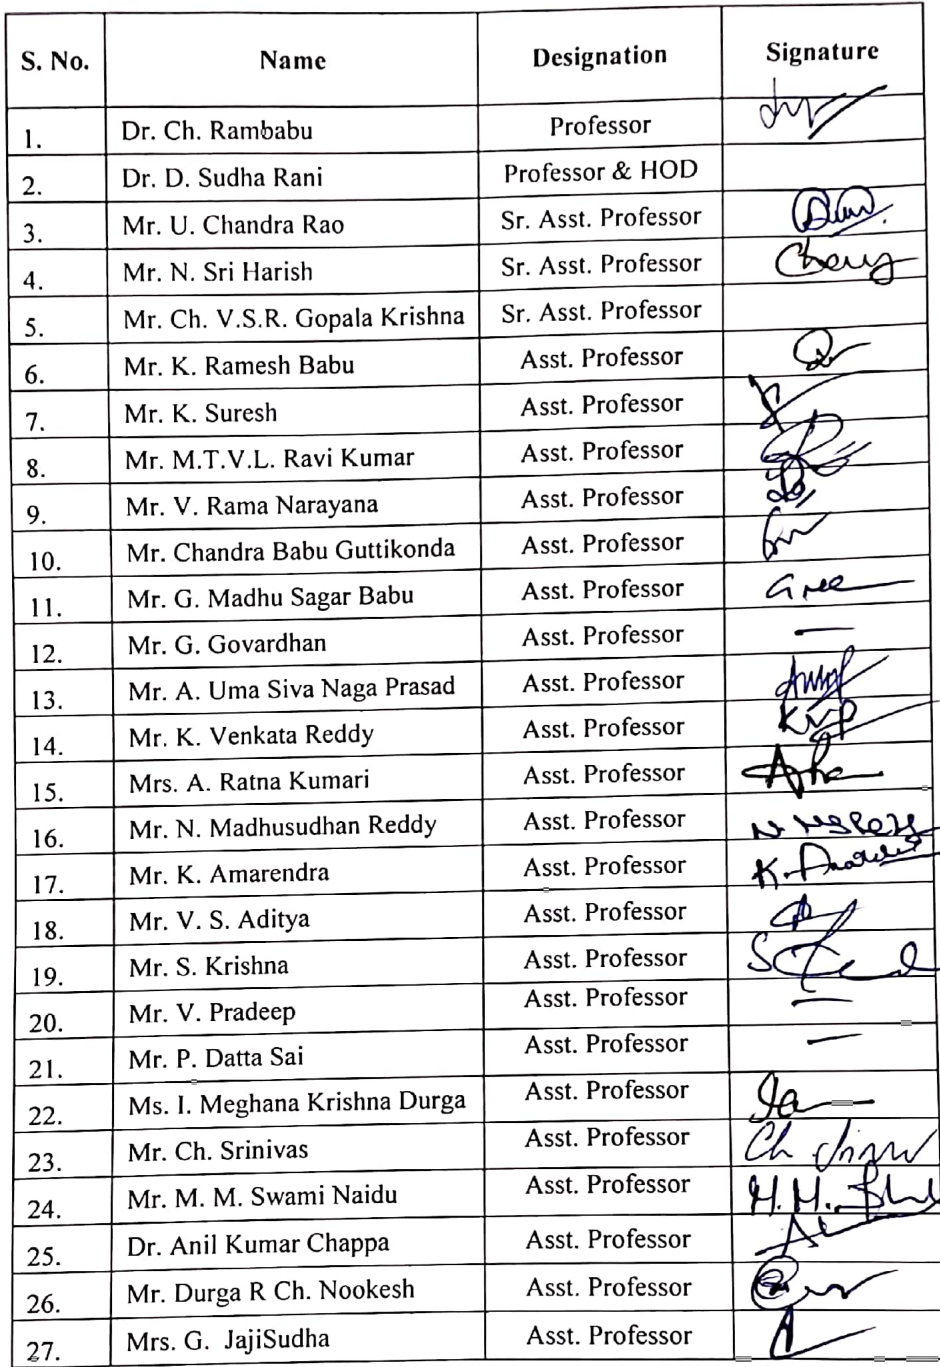 S. No. Name Designation Signature
1. Dr. Ch. Rambabu Professor
2. Dr. D. Sudha Rani Professor & HOD
3. Mr. U. Chandra Rao Sr. Asst. Professor
4. Mr. N. Sri Harish Sr. Asst. Professor
5. Mr. Ch. V.S.R. Gopala Krishna Sr. Asst. Professor
6. Mr. K. Ramesh Babu Asst. Professor
7. Mr. K. Suresh Asst. Professor
8. Mr. M.T.V.L. Ravi Kumar Asst. Professor
9. Mr. V. Rama Narayana Asst. Professor
10. Mr. Chandra Babu Guttikonda Asst. Professor
11. Mr. G. Madhu Sagar Babu Asst. Professor
12. Mr. G. Govardhan Asst. Professor —
13. Mr. A. Uma Siva Naga Prasad Asst. Professor
14. Mr. K. Venkata Reddy Asst. Professor
15. Mrs. A. Ratna Kumari Asst. Professor
16. Mr. N. Madhusudhan Reddy Asst. Professor
17. Mr. K. Amarendra Asst. Professor
18. Mr. V. S. Aditya Asst. Professor
19. Mr. S. Krishna Asst. Professor
20. Mr. V. Pradeep Asst. Professor —
21. Mr. P. Datta Sai Asst. Professor —
22. Ms. I. Meghana Krishna Durga Asst. Professor
23. Mr. Ch. Srinivas Asst. Professor Ch
24. Mr. M. M. Swami Naidu Asst. Professor M.M.
25. Dr. Anil Kumar Chappa Asst. Professor
26. Mr. Durga R Ch. Nookesh Asst. Professor
27. Mrs. G. JajiSudha Asst. Professor